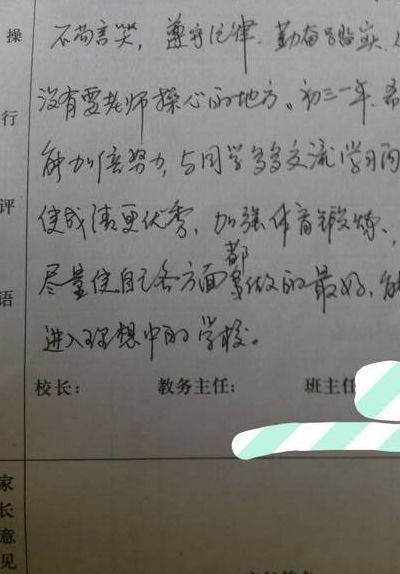 操行评语
不苟言笑，遵守纪律、勤奋踏实、
没有要老师操心的地方。初三一年，希
能加倍努力，与同学多多交流学习问
使成绩更优秀，加强体育锻炼、
尽量使自己各方面都做的最好，能
进入理想中的学校。
校长： 教务主任： 班主任
家长意见